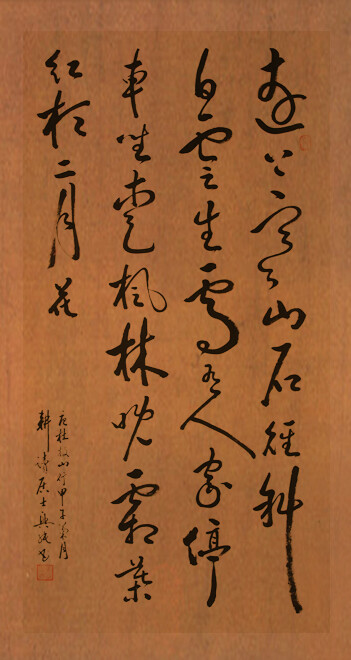 遠上寒山石徑斜
白雲生處有人家停
車坐愛楓林晚霜葉
紅於二月花
杜牧山行甲子月
耕居士